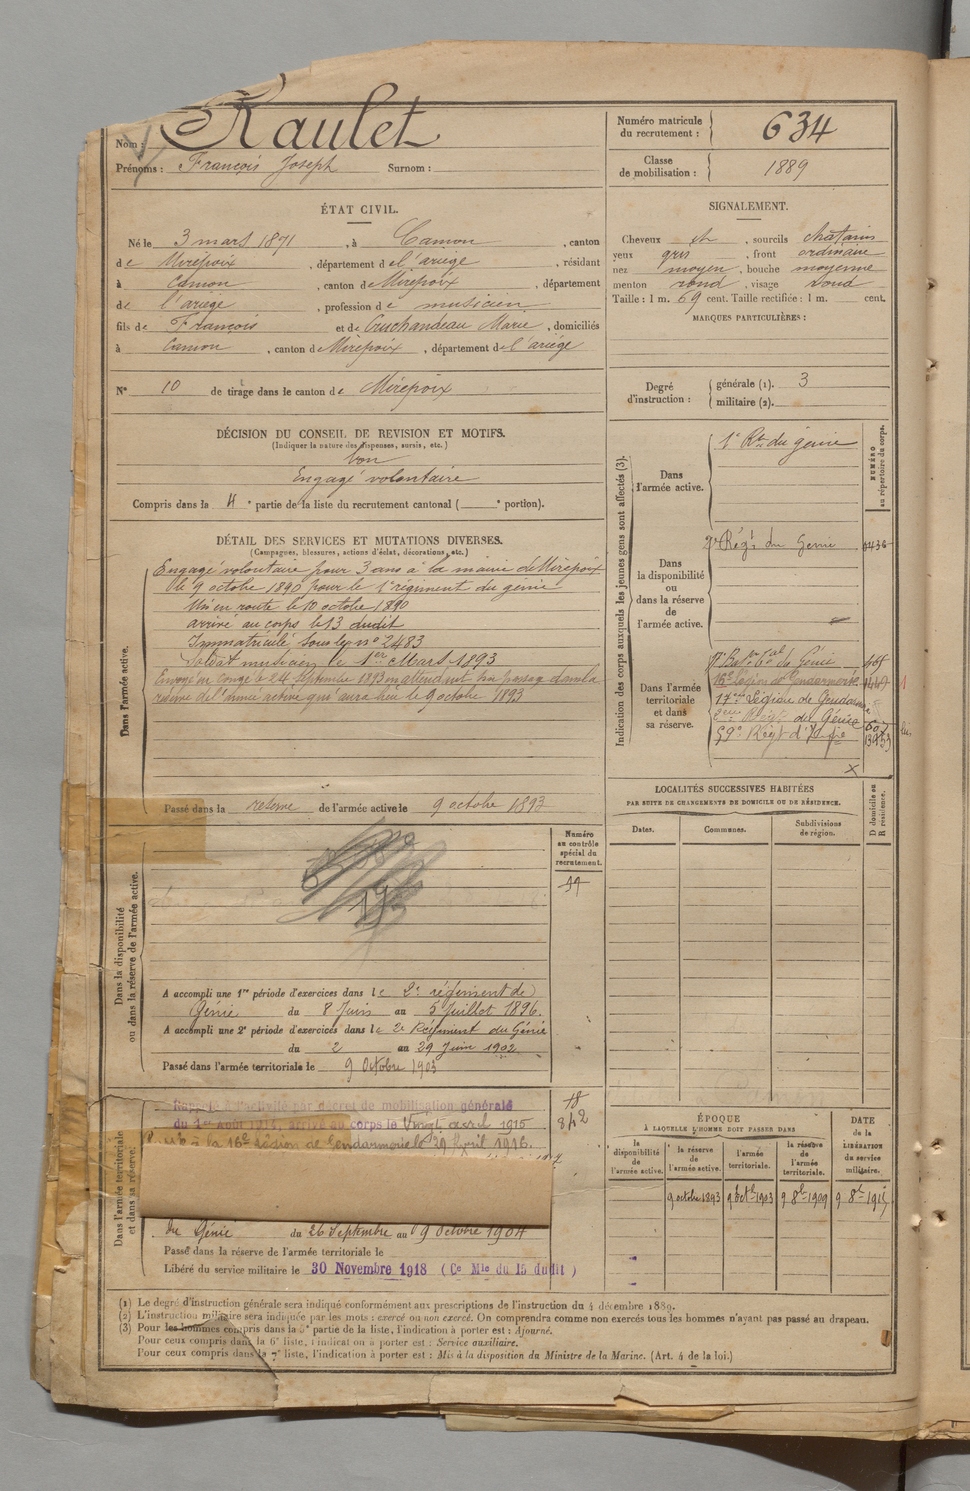 Nom : Raulet
Prénoms : François Joseph Surnom :
Numéro matricule du recrutement : 634
Classe de mobilisation : 1889
ÉTAT CIVIL.
Né le 3 mars 1871, à Camon, canton
de Mirepoix, département de l'ariège, résidant
à Camon, canton de Mirepoix, département
de l'ariège, profession de musicien
fils de François et de Cruchandeau Marie, domiciliés
à Camon, canton de Mirepoix, département de l'ariège
N° 10 de tirage dans le canton de Mirepoix
SIGNALEMENT.
Cheveux ch, sourcils chatains
yeux gris, front ordinaire
nez moyen, bouche moyenne
menton rond, visage rond
Taille : 1 m. 69 cent. Taille rectifiée : 1 m. cent.
MARQUES PARTICULIÈRES :
Degré d'instruction : générale (1). 3
militaire (2).
DÉCISION DU CONSEIL DE REVISION ET MOTIFS.
(Indiquer la nature des dispenses, sursis, etc.)
bon
Engagé volontaire
Compris dans la 4e partie de la liste du recrutement cantonal ( e portion).
DÉTAIL DES SERVICES ET MUTATIONS DIVERSES.
(Campagnes, blessures, actions d'éclat, décorations, etc.)
Dans l'armée active.
Engagé volontaire pour 3 ans à la mairie de Mirepoix
le 9 octobre 1890 pour le 1er régiment du génie
Mis en route le 10 octobre 1890
arrivé au corps le 13 dudit
Immatriculé sous le n° 2483
Soldat musicien le 1er Mars 1893
Envoyé en congé le 24 septembre 1893 en attendant son passage dans la
réserve de l'armée active qui aura lieu le 9 octobre 1893
Passé dans la reserve de l'armée active le 9 octobre 1893
Indication des corps auxquels les jeunes gens sont affectés (3).
NUMÉRO au répertoire du corps.
Dans l'armée active.
1er Rt du génie
Dans la disponibilité ou dans la réserve de l'armée active.
2e Régt du Génie
Dans l'armée territoriale et dans sa réserve.
de Génie
16e Légion de Gendarmerie
17me Légion de Gendarmie
2eme Régt du Génie
59e Régt d'Infie
LOCALITÉS SUCCESSIVES HABITÉES
PAR SUITE DE CHANGEMENTS DE DOMICILE OU DE RÉSIDENCE.
Dates. Communes. Subdivisions de région. D domicile ou R résidence.
Dans la disponibilité ou dans la réserve de l'armée active.
Numéro au contrôle spécial du recrutement.
A accompli une 1re période d'exercices dans le 2e régiment de
Génie du 8 Juin au 5 Juillet 1896.
A accompli une 2e période d'exercices dans le 2e Régiment du Génie
du 2 au 29 Juin 1902
Passé dans l'armée territoriale le 9 Octobre 1903
Dans l'armée territoriale et dans sa réserve.
Rappelé à l'activité par décret de mobilisation générale
du 1er Août 1914, arrivé au corps le Vingt avril 1915
Passé à la 16e Légion de Gendarmerie le 29 Avril 1916.
842
du Génie du 26 Septembre au 9 Octobre 1904
Passé dans la réserve de l'armée territoriale le
Libéré du service militaire le 30 Novembre 1918 (Ce Mle du 15 dudit)
ÉPOQUE
À LAQUELLE L'HOMME DOIT PASSER DANS
la disponibilité de l'armée active. la réserve de l'armée active. l'armée territoriale. la réserve de l'armée territoriale.
DATE de la LIBÉRATION du service militaire.
9 octobre 1893 9 Octe 1903 9 8bre 1909 9 8bre 1915
(1) Le degré d'instruction générale sera indiqué conformément aux prescriptions de l'instruction du 4 décembre 1889.
(2) L'instruction militaire sera indiquée par les mots : exercé ou non exercé. On comprendra comme non exercés tous les hommes n'ayant pas passé au drapeau.
(3) Pour les hommes compris dans la 5e partie de la liste, l'indication à porter est : Ajourné.
Pour ceux compris dans la 6e liste, l'indication à porter est : Service auxiliaire.
Pour ceux compris dans la 7e liste, l'indication à porter est : Mis à la disposition du Ministre de la Marine. (Art. 4 de la loi.)